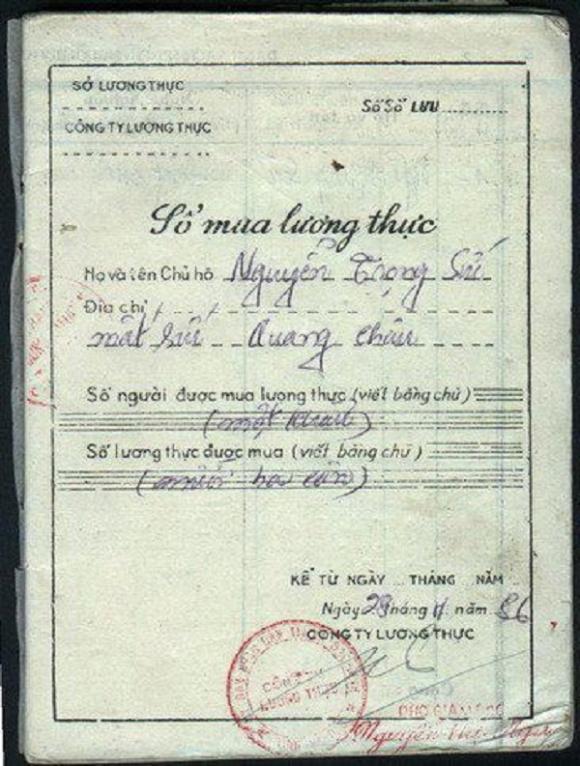 SỞ LƯƠNG THỰC
CÔNG TY LƯƠNG THỰC
Số Sổ LƯU
Sổ mua lương thực
Họ và tên Chủ hộ Nguyễn Trọng Sử
Địa chỉ
mất sức Quang Châu
Số người được mua lương thực (viết bằng chữ)
(một
Số lương thực được mua (viết bằng chữ)
KỂ TỪ NGÀY THÁNG NĂM
Ngày 28 tháng 11 năm 86
CÔNG TY LƯƠNG THỰC
CÔNG TY
LƯƠNG THỰC
PHÓ GIÁM ĐỐC
Nguyễn